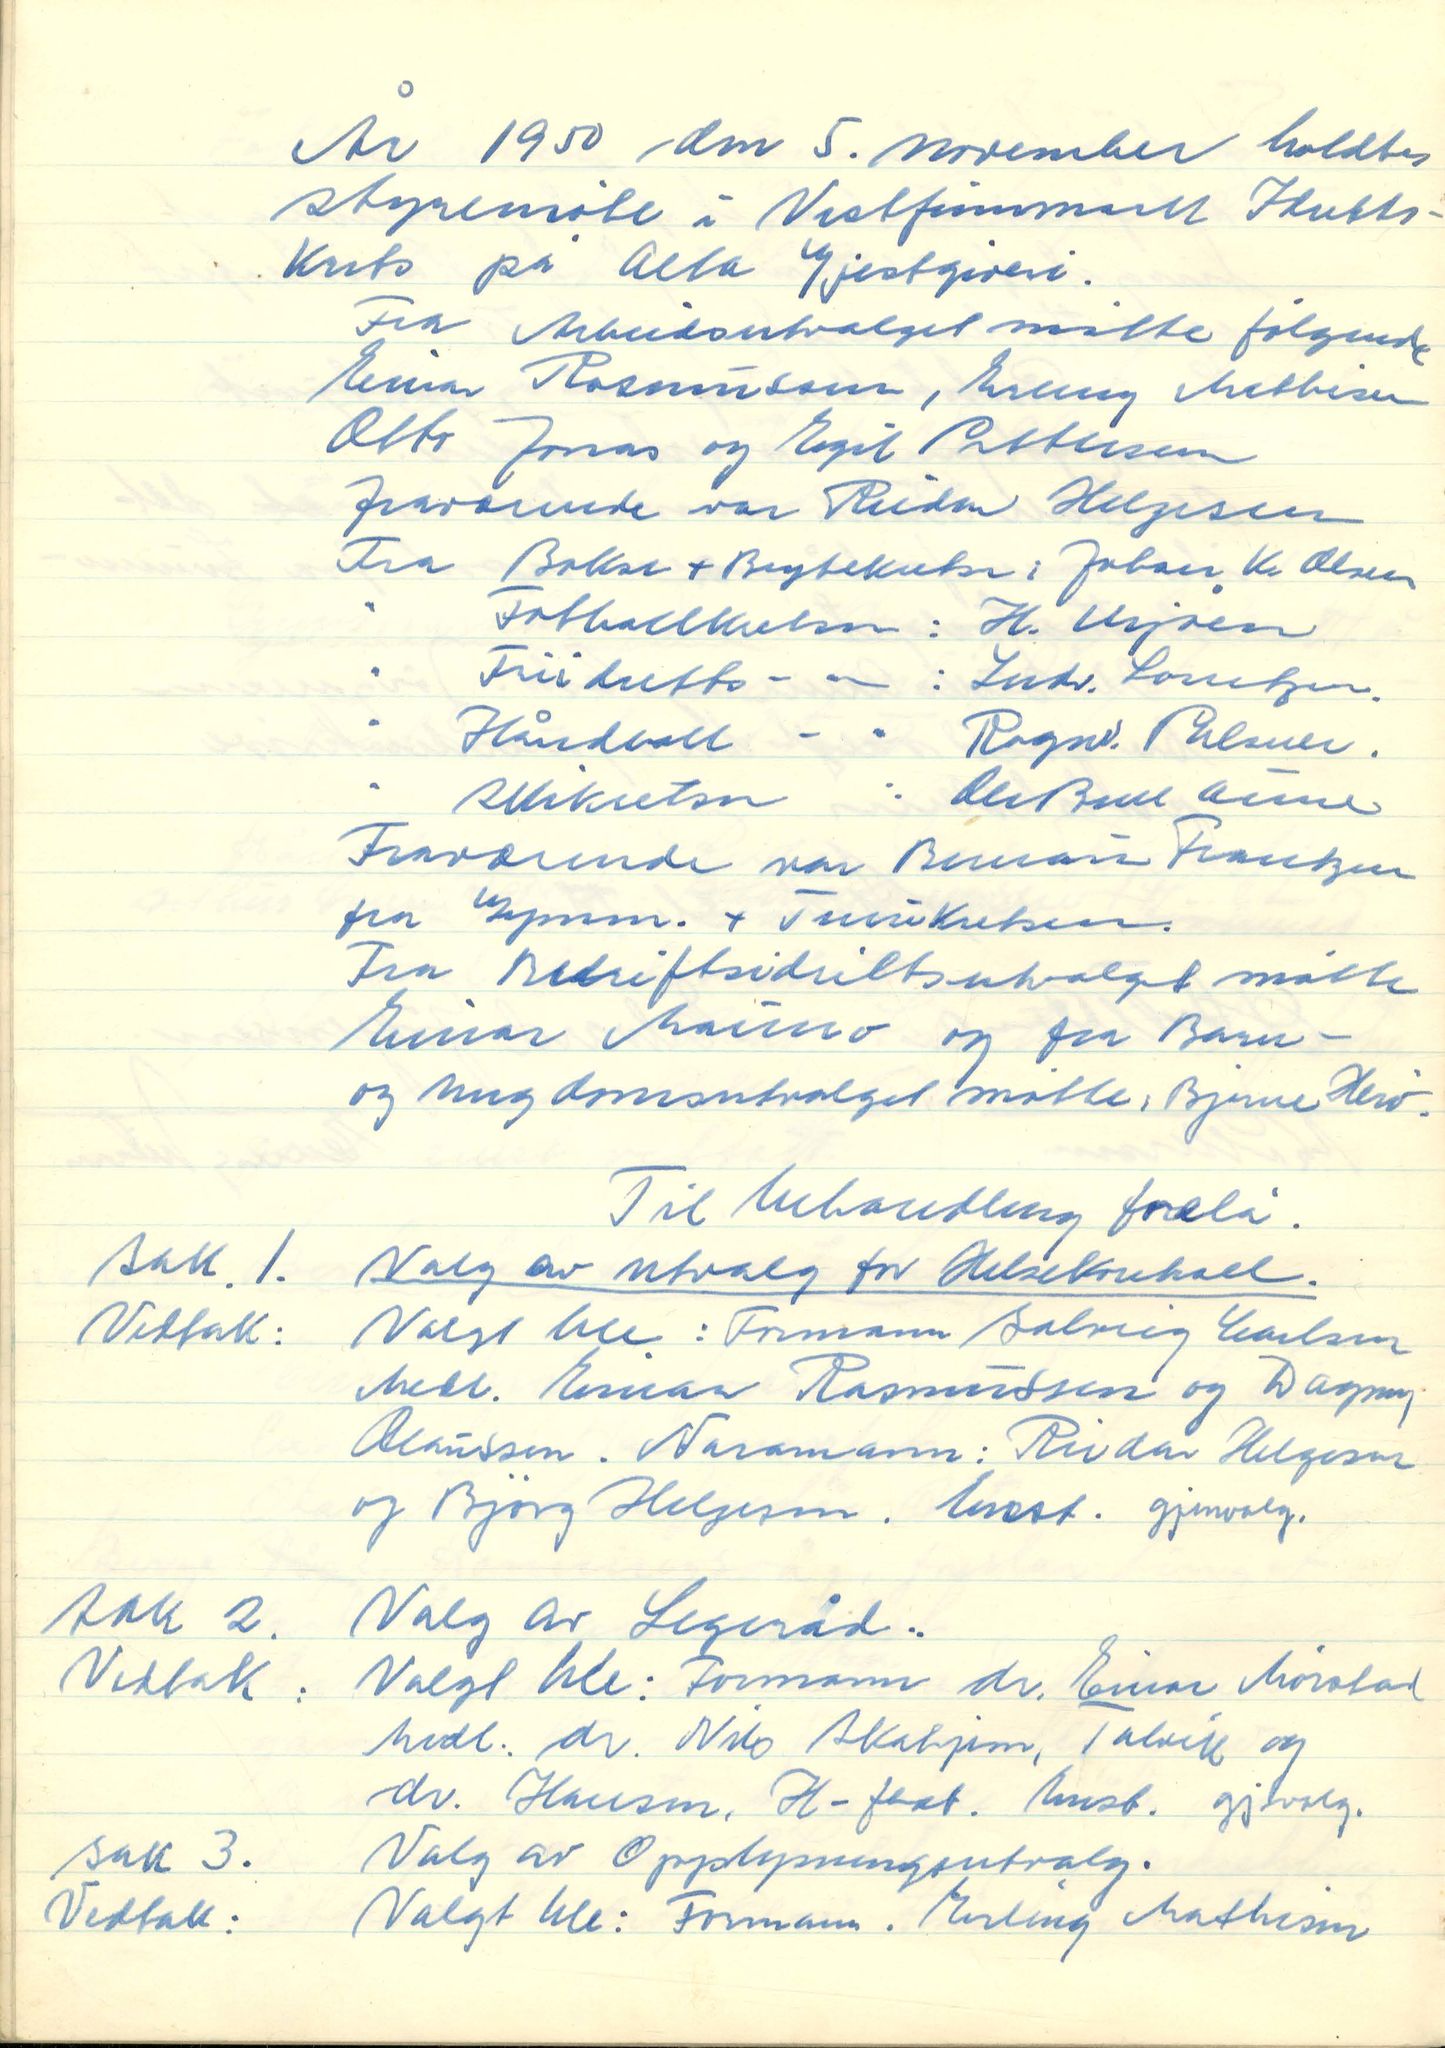 År 1950 den 5. november holdtes
styremöte i Vestfinnmark Idretts-
Krets på Alta Gjestgiveri.
Fra Arbeidsutvalget mötte fölgende
Einar Rasmussen, Erling Mathisen
Otto Jonas og Egil Pettersen
fraværende var Reidar Helgesen
Fra Bokse + Brytekretsen: Johan K. Olsen
" Fotballkretsen : H.
" Friidretts - " - : Ludv. Lorentzen.
" Håndball - " Ragnv. Pedersen.
" Skikretsen : Ole Bull Aune
Fraværende var Frantzen
fra Gymn. + Turnkretsen.
Fra Bedriftsidrettsutvalget mötte
Einar Mauno og fra Barn-
og Ungdomsutvalget mötte, Bjarne
Til behandling forelå.
Sak. 1. Valg av utvalg for Helsekontroll.
Vedtak: Valgt ble : Formann Solveig Carlsen
Medl. Einar Rasmussen og Dagny
Olaussen. Varamann: Reidar Helgesen
og Björg Helgesen. Enst. gjenvalg.
Sak 2. Valg av Legeråd..
Vedtak : Valgt ble: Formann dr. Einar Mörstad
Medl. dr. Nils Skahjem, Talvik og
dr. Hansen, H-fest. Enst. gjvalg.
Sak 3. Valg av Opplysningsutvalg.
Vedtak: Valgt ble: Formann. Erling Mathisen